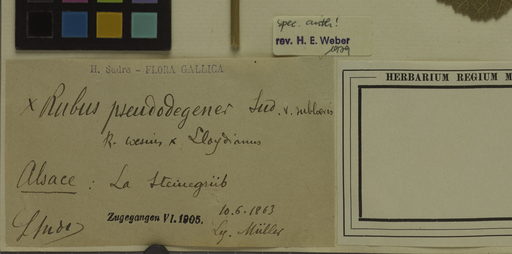 spec. auth!
rev. H. E. Weber
H. Sudre – FLORA GALLICA
HERBARIUM REGIUM M
× Rubus pseudodegener Sud.
R. caesius × Lloydianus
Alsace : La Steinegrüb
Zugegangen VI. 1905.
10-6-1863
Lg. Müller